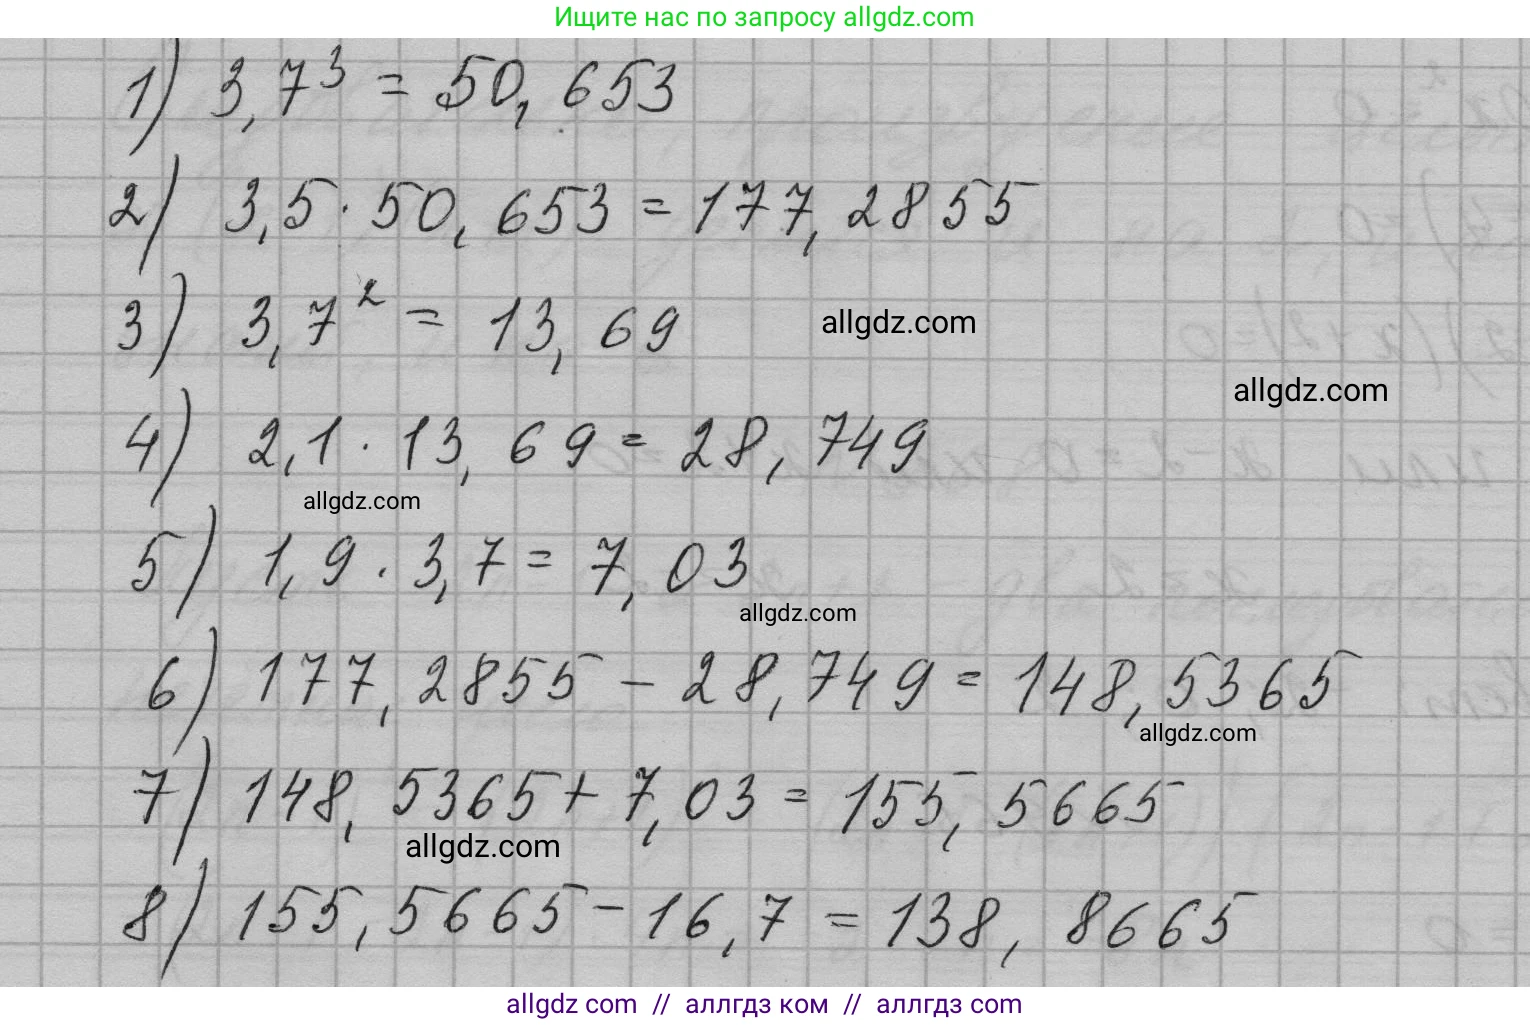 Ищите нас по запросу allgdz.com
1) 3,7³ = 50,653
2) 3,5 · 50,653 = 177,2855
3) 3,7² = 13,69
allgdz.com
allgdz.com
4) 2,1 · 13,69 = 28,749
allgdz.com
5) 1,9 · 3,7 = 7,03
allgdz.com
6) 177,2855 - 28,749 = 148,5365
allgdz.com
7) 148,5365 + 7,03 = 155,5665
allgdz.com
8) 155,5665 - 16,7 = 138,8665
allgdz com // аллгдз ком // аллгдз com